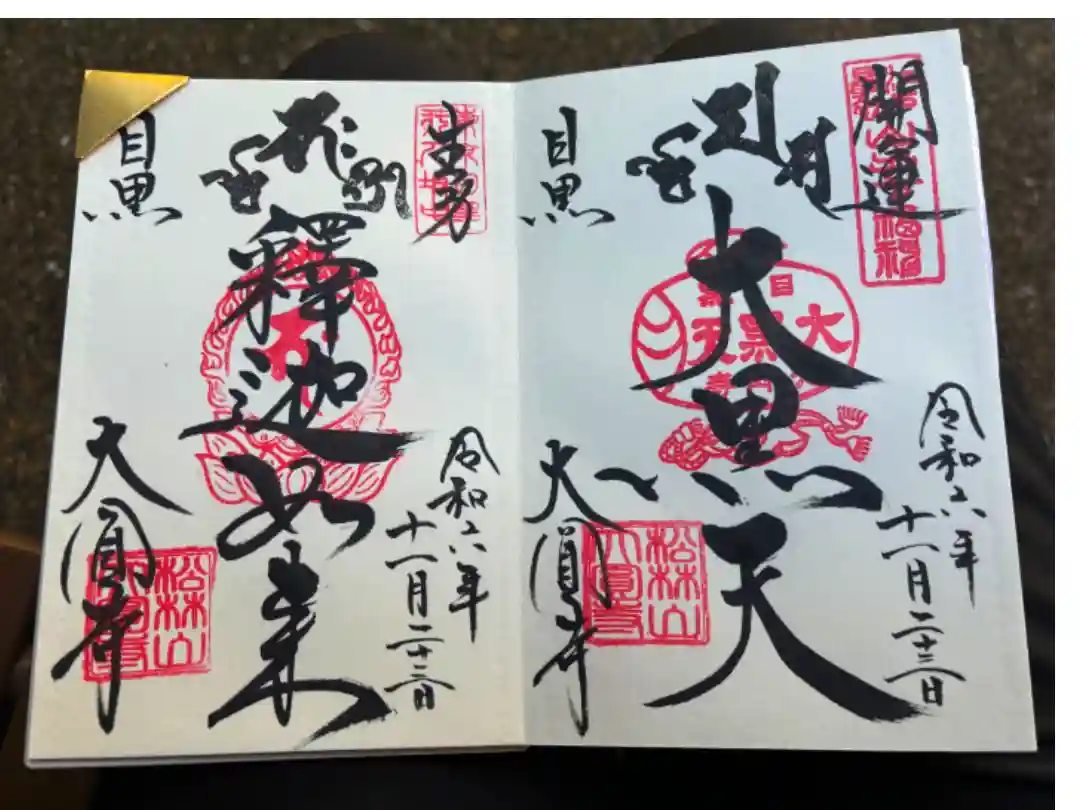 開運
令和六年
十一月二十三日
大黒天
松林山
大圓寺
目黒
大圓寺
生身
令和六年
十一月二十三日
釋迦如来
松林山
大圓寺
目黒
大圓寺